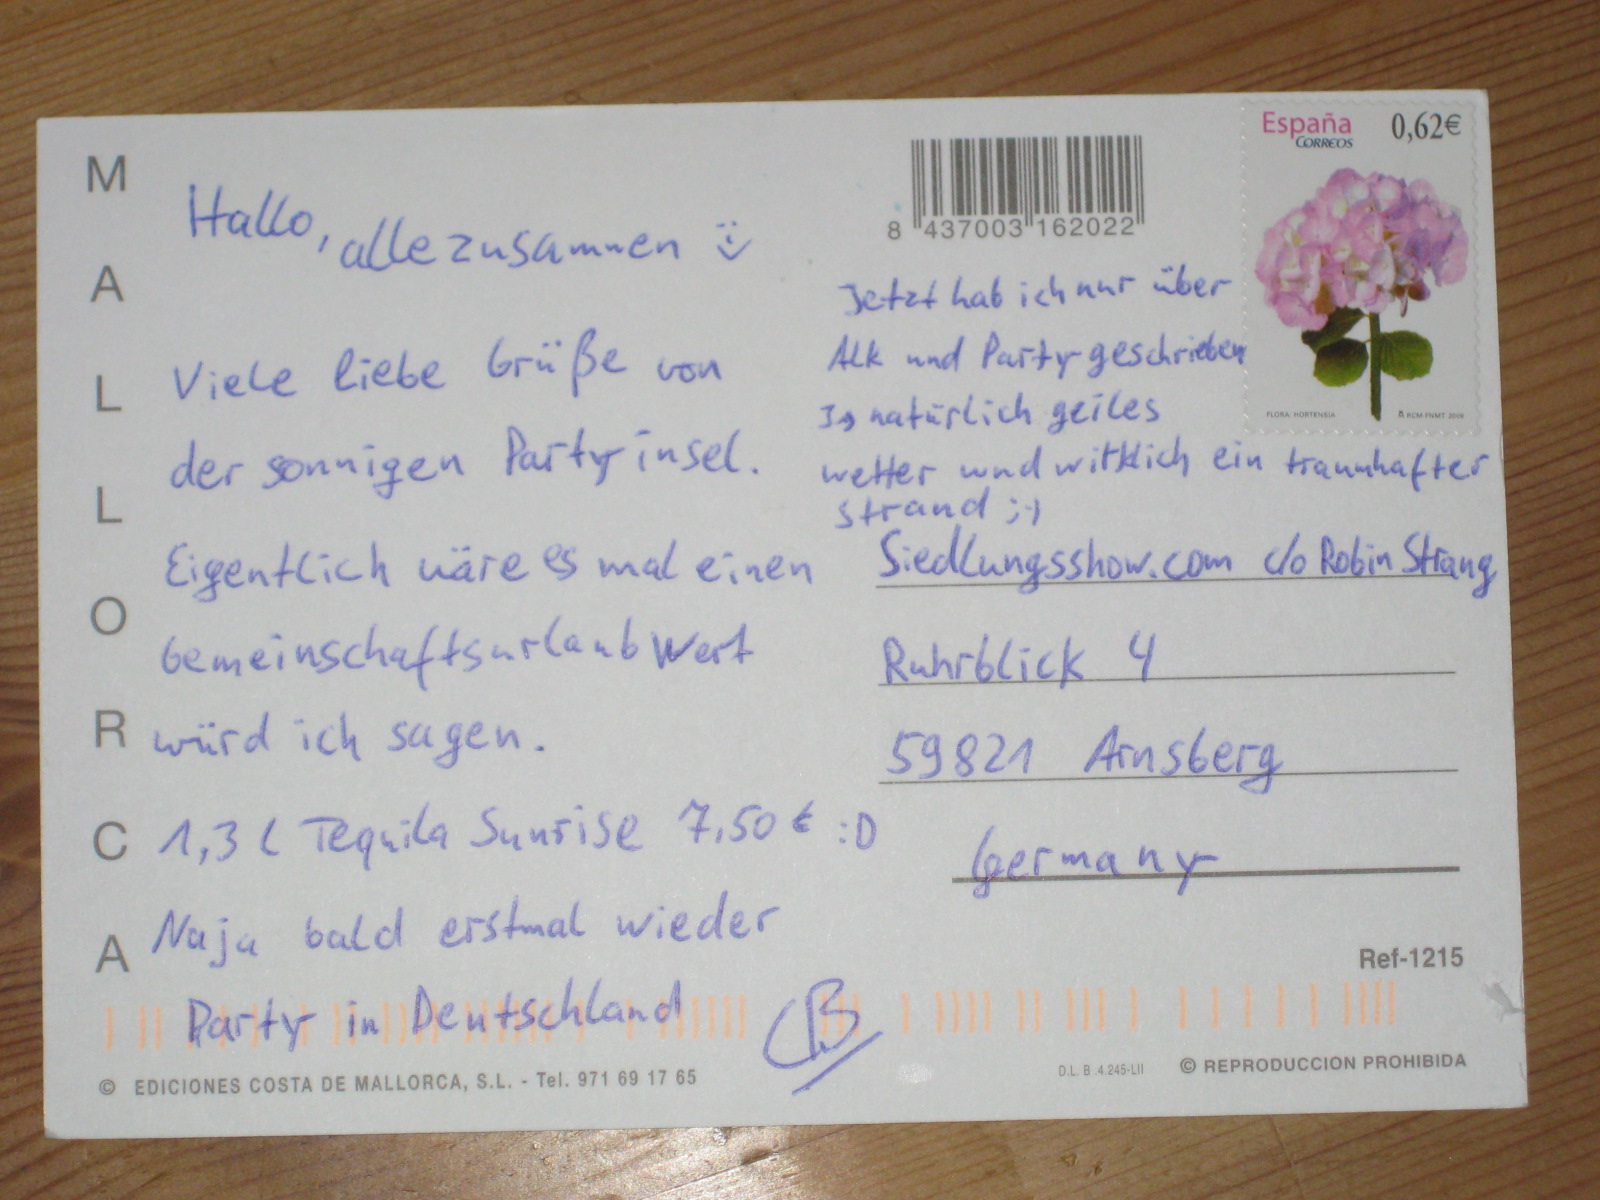 MALLORCA
Hallo, alle zusammen :)
Viele liebe Grüße von
der sonnigen Partyinsel.
Eigentlich wäre es mal einen
Gemeinschaftsurlaub Wert
würd ich sagen.
1,3 l Tequila Sunrise 7,50 € :D
Naja bald erstmal wieder
Party in Deutschland
© EDICIONES COSTA DE MALLORCA, S.L. - Tel. 971 69 17 65
8 437003 162022
España
CORREOS
0,62€
FLORA: HORTENSIA
RCM-FNMT
Jetzt hab ich nur über
Alk und Party geschrieben
Is natürlich geiles
wetter und wirklich ein traumhafter
strand ;-)
Siedlungsshow.com c/o Robin Strang
Ruhrblick 4
59821 Arnsberg
Germany
Ref-1215
D.L. B .4.245-LII
© REPRODUCCION PROHIBIDA